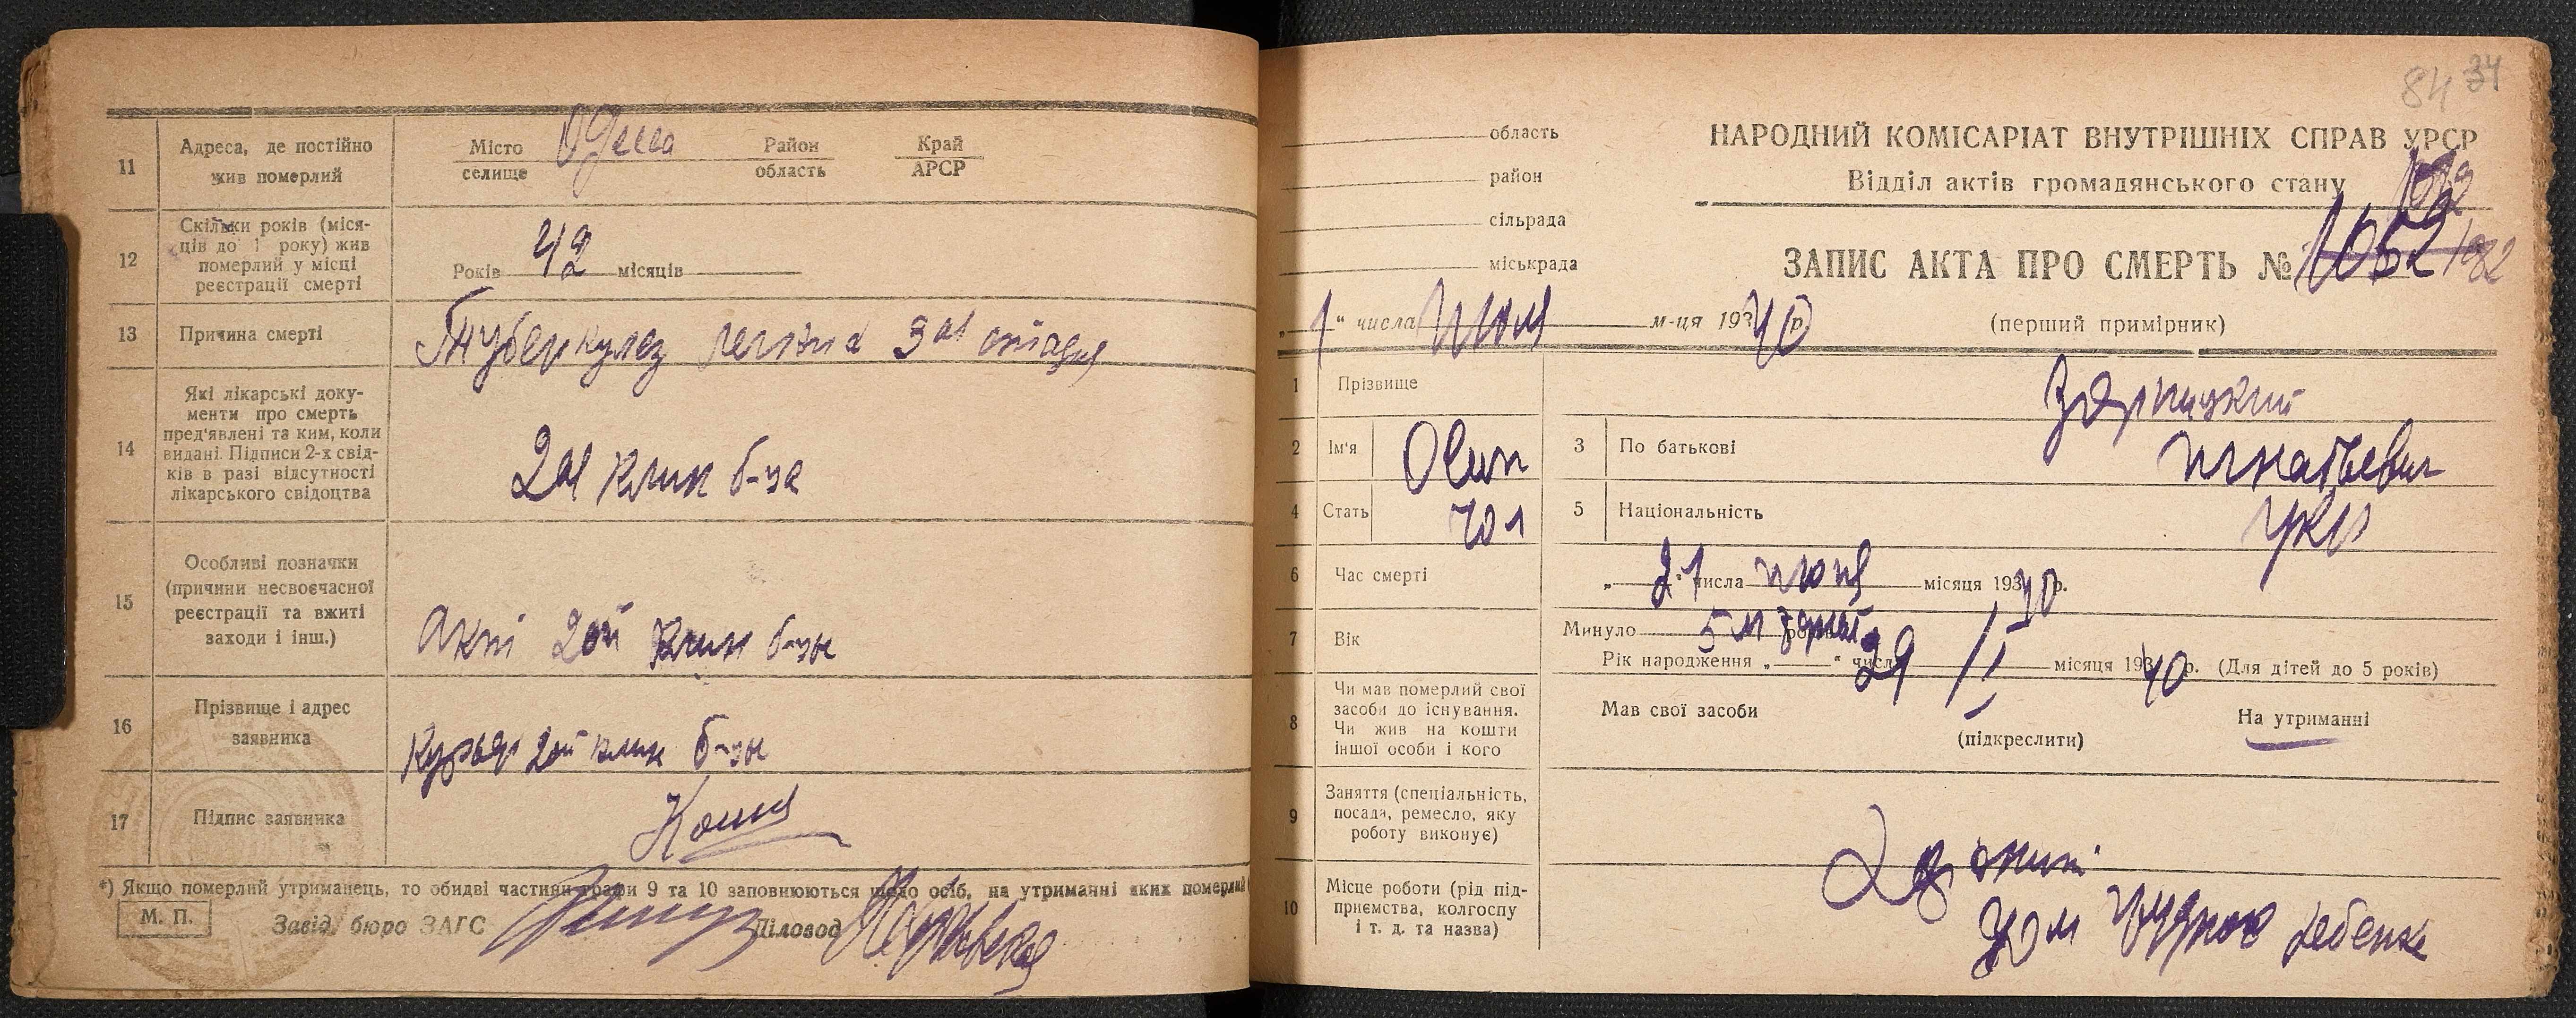 11
Адреса, де постійно
жив померлий
Місто Одесса Район Край
селище область АРСР
12
Скільки років (міся-
ців до 1 року) жив
померлий у місці
реєстрації смерті
Років 42 місяців
13
Причина смерті
Туберкулез легких 3ая стадия
14
Які лікарські доку-
менти про смерть
пред'явлені та ким, коли
видані. Підписи 2-х свід-
ків в разі відсутності
лікарського свідоцтва
2ая клин б-ца
15
Особливі позначки
(причини несвоєчасної
реєстрації та вжиті
заходи і інш.)
Акт 2ой клин б-цы
16
Прізвище і адрес
заявника
Курьер 2ой клин б-цы
17
Підпис заявника
*) Якщо померлий утриманець, то обидві частини графи 9 та 10 заповнюються щодо осіб, на утриманні яких померлий
М. П.
Завід. бюро ЗАГС Діловод
84 34
область
район
сільрада
міськрада
НАРОДНИЙ КОМІСАРІАТ ВНУТРІШНІХ СПРАВ УРСР
Відділ актів громадянського стану
ЗАПИС АКТА ПРО СМЕРТЬ №
„1“ числа м-ця 1940 р
(перший примірник)
1 Прізвище
2 Ім'я 3 По батькові Игнатьевич
4 Стать чол 5 Національність укр
6 Час смерті „21“ числа июня місяця 1940 р.
7 Вік
Минуло 5 м
Рік народження „ “ числа 29 місяця 1940 р. (Для дітей до 5 років)
8
Чи мав померлий свої
засоби до існування.
Чи жив на кошти
іншої особи і кого
Мав свої засоби На утриманні
(підкреслити)
9
Заняття (спеціальність,
посада, ремесло, яку
роботу виконує)
10
Місце роботи (рід під-
приємства, колгоспу
і т. д. та назва)
Дом грудного ребенка